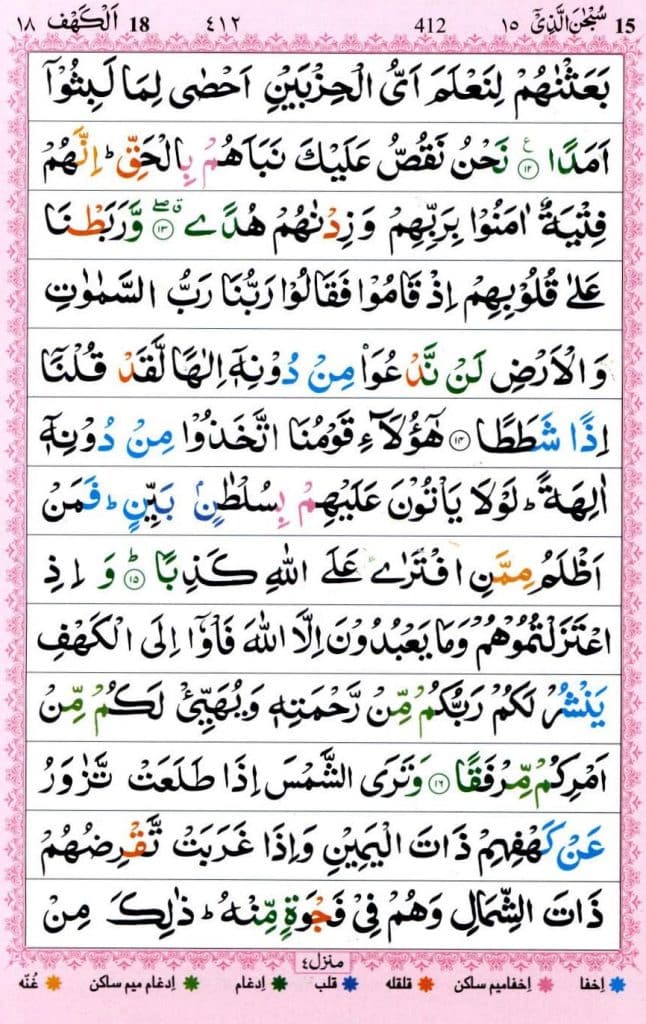 15 سُبْحٰنَ الَّذِیْٓ ١٥ 412 ٤١٢ 18 اَلْکَهْف ١٨
بَعَثْنٰهُمْ لِنَعْلَمَ اَیُّ الْحِزْبَیْنِ اَحْصٰی لِمَا لَبِثُوْۤا
اَمَدًا ۧ﴿۱۲﴾ نَحْنُ نَقُصُّ عَلَیْكَ نَبَاَهُمْ بِالْحَقِّ ؕ اِنَّهُمْ
فِتْیَةٌ اٰمَنُوْا بِرَبِّهِمْ وَ زِدْنٰهُمْ هُدًی ۖۗ﴿۱۳﴾ وَّ رَبَطْنَا
عَلٰی قُلُوْبِهِمْ اِذْ قَامُوْا فَقَالُوْا رَبُّنَا رَبُّ السَّمٰوٰتِ
وَ الْاَرْضِ لَنْ نَّدْعُوَا۟ مِنْ دُوْنِهٖۤ اِلٰهًا لَّقَدْ قُلْنَاۤ
اِذًا شَطَطًا ﴿۱۴﴾ هٰۤؤُلَآءِ قَوْمُنَا اتَّخَذُوْا مِنْ دُوْنِهٖۤ
اٰلِهَةً ؕ لَوْلَا یَاْتُوْنَ عَلَیْهِمْ بِسُلْطٰنٍۭ بَیِّنٍ ؕ فَمَنْ
اَظْلَمُ مِمَّنِ افْتَرٰی عَلَی اللّٰهِ كَذِبًا ؕ﴿۱۵﴾ وَ اِذِ
اعْتَزَلْتُمُوْهُمْ وَمَا یَعْبُدُوْنَ اِلَّا اللّٰهَ فَاْوٗۤا اِلَی الْكَهْفِ
یَنْشُرْ لَكُمْ رَبُّكُمْ مِّنْ رَّحْمَتِهٖ وَیُهَیِّئْ لَكُمْ مِّنْ
اَمْرِكُمْ مِّرْفَقًا ﴿۱۶﴾ وَتَرَی الشَّمْسَ اِذَا طَلَعَتْ تَّزٰوَرُ
عَنْ كَهْفِهِمْ ذَاتَ الْیَمِیْنِ وَاِذَا غَرَبَتْ تَّقْرِضُهُمْ
ذَاتَ الشِّمَالِ وَهُمْ فِیْ فَجْوَةٍ مِّنْهُ ؕ ذٰلِكَ مِنْ
منزل ٤
اِخفا اِخفامیم ساکن قلقله قلب اِدغام اِدغام میم ساکن غُنّه